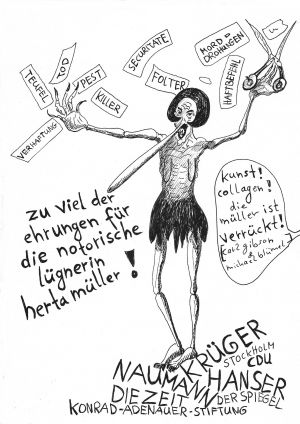 SECURITATE
MORD=
DROHUNGEN
TOD
TEUFEL
PEST
FOLTER
HAFTBEFEHL
KILLER
VERHAFTUNG
kunst!
collagen!
die
müller ist
verrückt!
karl gibson
&
michael blümel
zu viel der
ehrungen für
die notorische
lügnerin
herta müller!
KRÜGER
STOCKHOLM
CDU
NAUMANN HANSER
DIE ZEIT DER SPIEGEL
KONRAD-ADENAUER-STIFTUNG